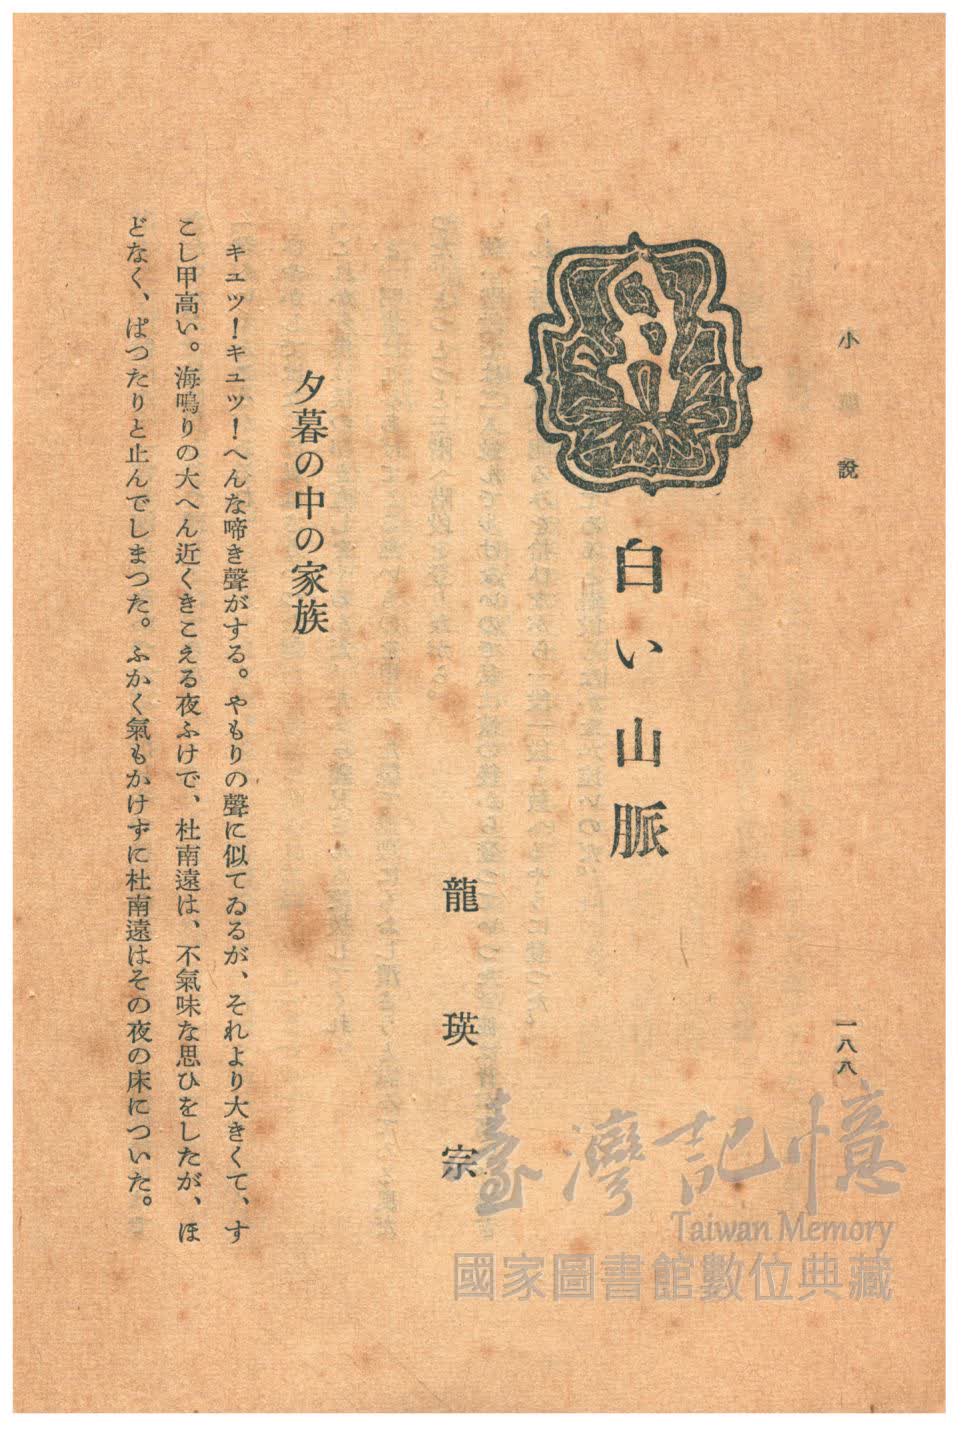 小說
一八八
白い山脈
龍瑛宗
夕暮の中の家族
キユツ！キユツ！へんな啼き聲がする。やもりの聲に似てゐるが、それより大きくて、す
こし甲高い。海鳴りの大へん近くきこえる夜ふけで、杜南遠は、不氣味な思ひをしたが、ほ
どなく、ぱつたりと止んでしまつた。ふかく氣もかけずに杜南遠はその夜の床についた。
臺灣記憶
Taiwan Memory
國家圖書館數位典藏